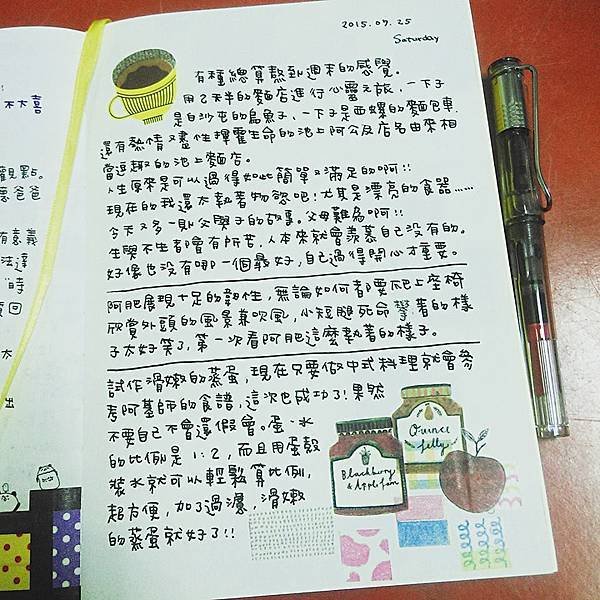 2015.09.25
Saturday
有種總算熬到週末的感覺。
用2天半的麵店進行心靈之旅,一下子
是白沙屯的烏魚子、一下子是西螺的麵包車.
還有熱情又盡性揮霍生命的池上阿公及店名由來相
當逗趣的池上麵店。
人生原來是可以過得如此簡單又滿足的啊!!
現在的我還太執著物慾吧!尤其是漂亮的食器……
今天又多一則父與子的故事。父母難為啊!!
生與不生都會有所苦.人本來就會羨慕自己沒有的。
好像也沒有哪一個最好,自己過得開心才重要。
阿肥展現十足的韌性,無論如何都要爬上座椅
欣賞外頭的風景兼吹風,小短腿死命攀著的樣
子太好笑了,第一次看阿肥這麼執著的樣子。
試作滑嫩的蒸蛋,現在只要做中式料理就會參
考阿基師的食譜,這次也成功了!果然
不要自己不會還假會。蛋、水
的比例是1:2,而且用蛋殼
裝水就可以輕鬆算比例,
超方便,加了過濾,滑嫩
的蒸蛋就好了!!
Quince
Jelly
Blackberry
& Apple Jam
不太喜
觀點。
爸爸
有意義
法達
時
回
太
出